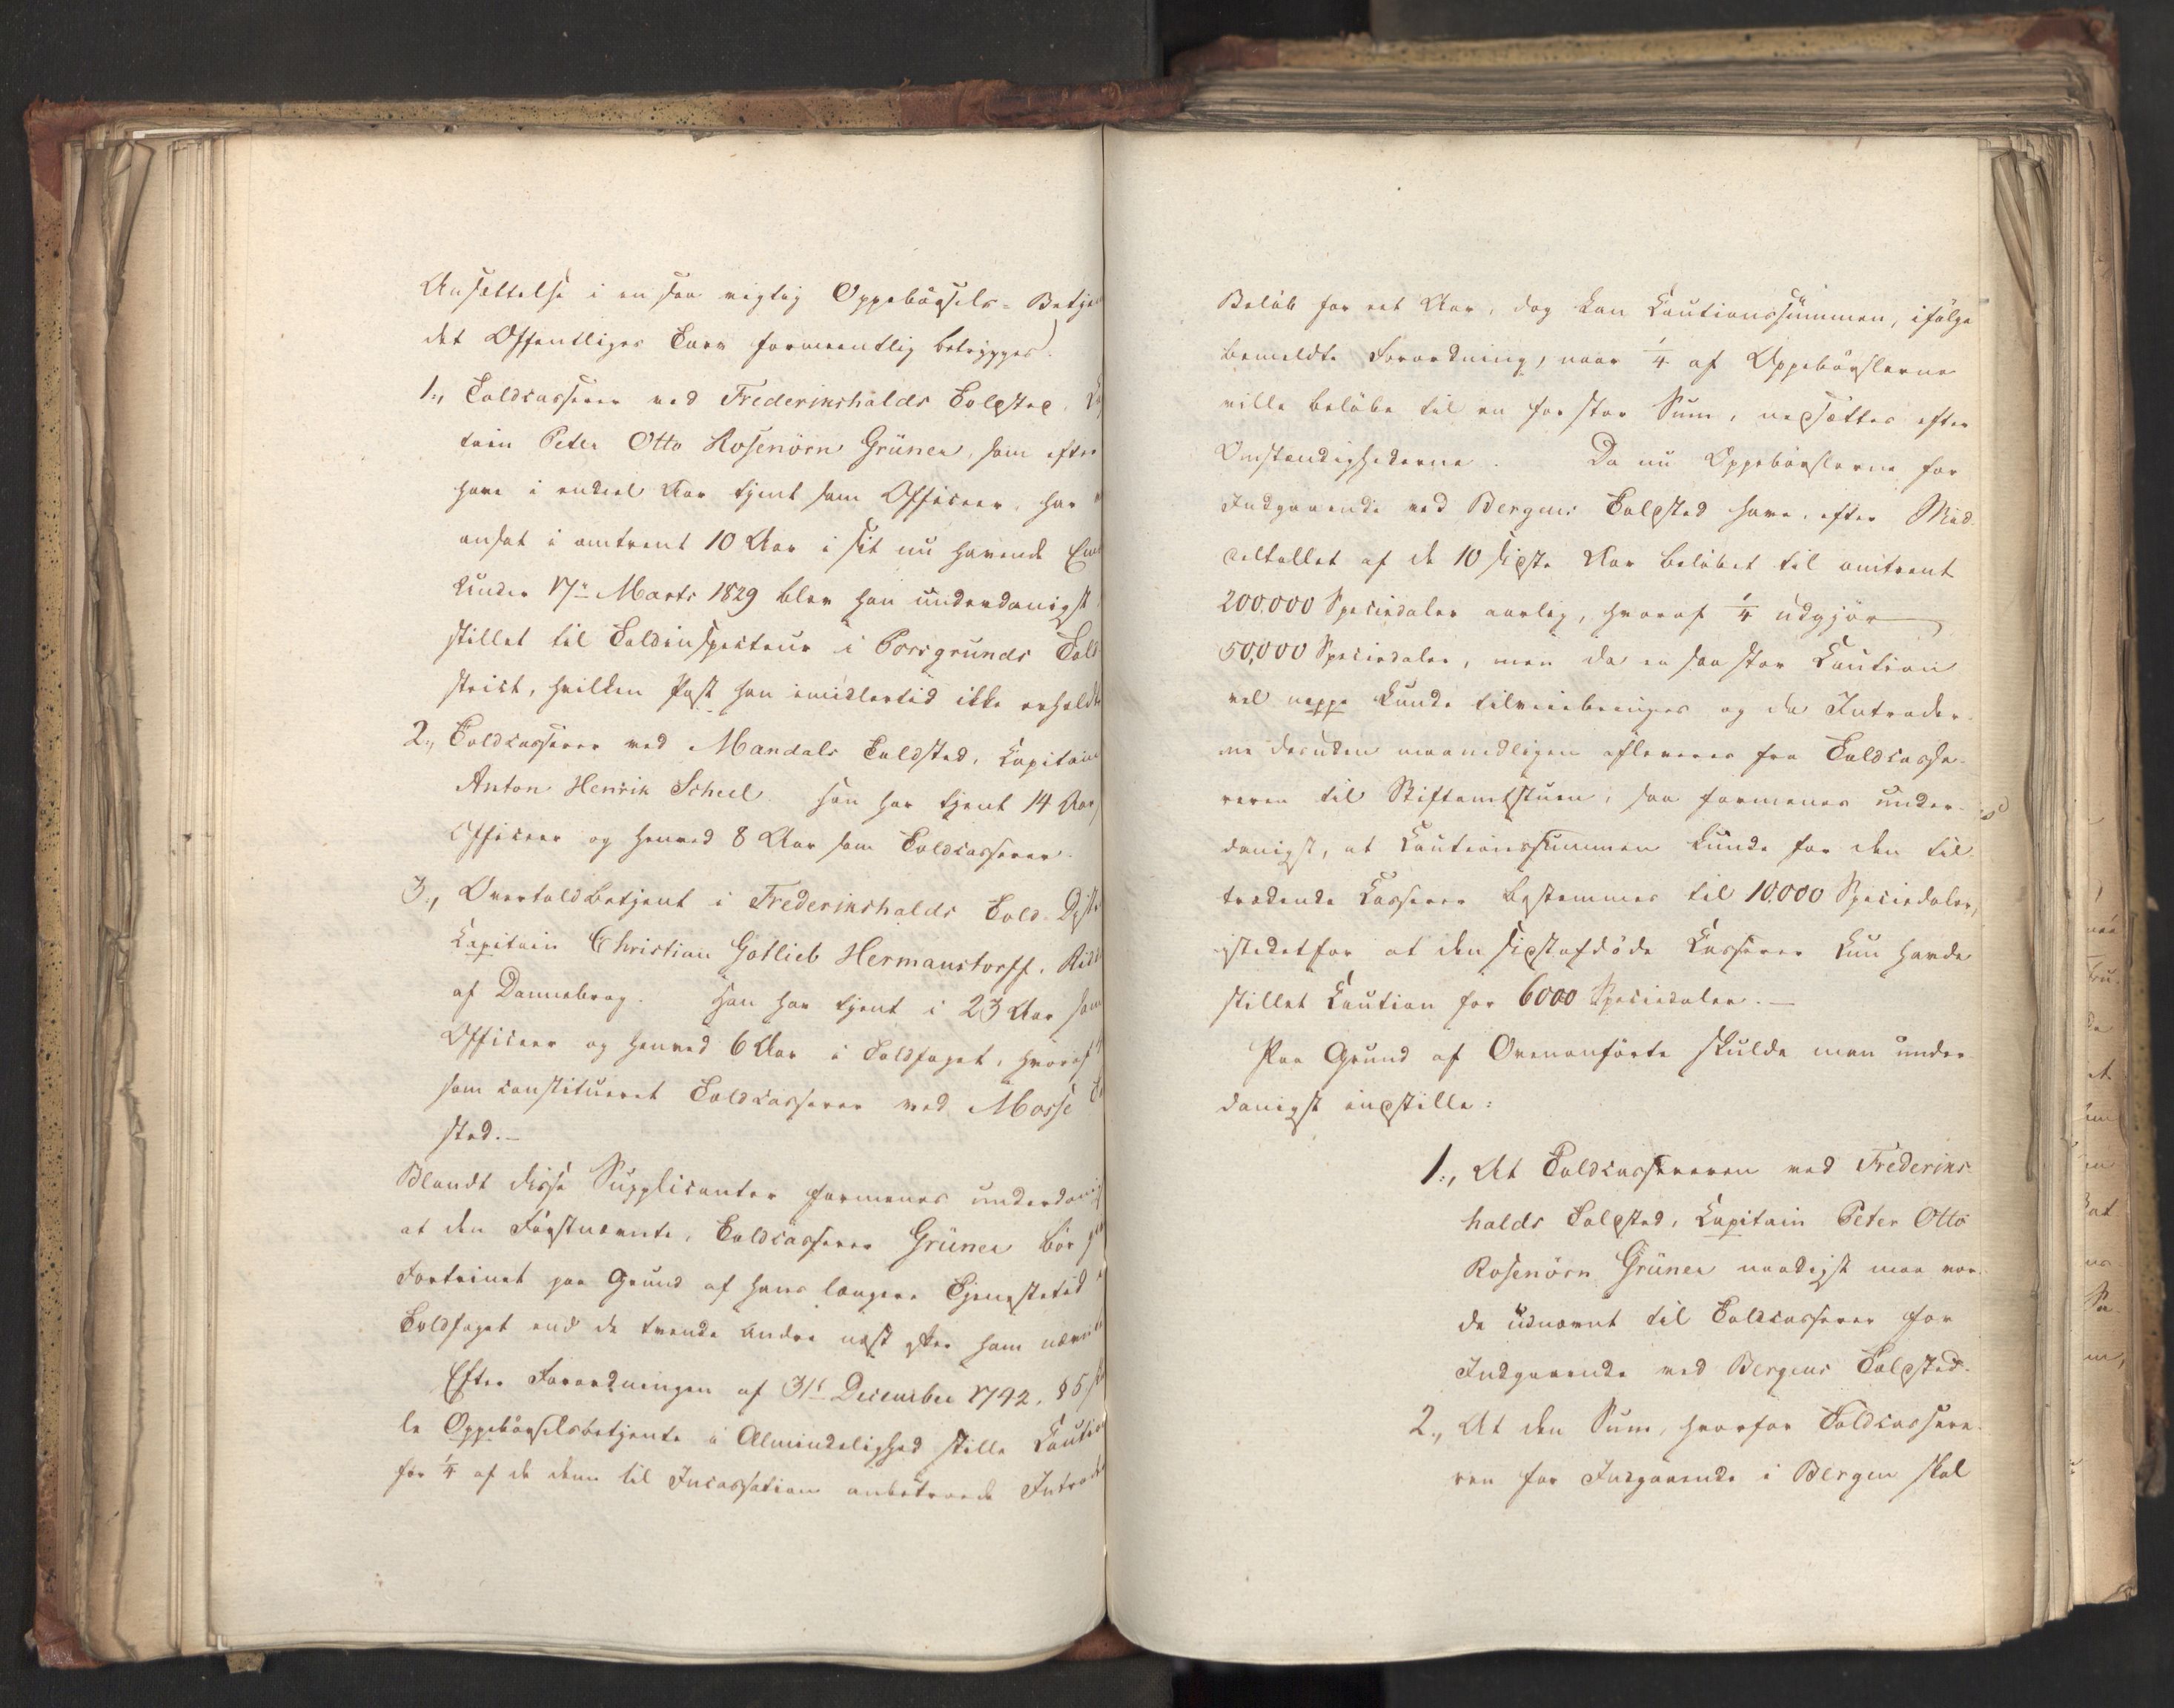 Ansættelse i en saa vigtig Oppebørsels-Betje
det Offentliges Tarv formeentlig betrygges.
1., Toldcasserer ved Frederikshalds Toldsted,
tain Peter Otto Rosenörn Grüner, som efter
have i endeel Aar tjent som Officeer, har
ansat i omtrent 10 Aar i sit nu havende
Under 17de Marts 1829 blev han underdanigst
stillet til Toldinspecteur i Porsgrunds Told
strict, hvilken Post han imidlertid ikke erholdt
2., Toldcasserer ved Mandals Toldsted, Capitain
Anton Henrik Scheel. Han har tjent 14 Aar
Officeer og henved 8 Aar som Toldcasserer.
3., Overtoldbetjent i Frederikshalds Told-Distr
Capitain Christian Gotlieb Hermanstorff, Ridd
af Dannebrog. Han har tjent i 23 Aar som
Officeer og henved 6 Aar i Toldfaget, hvoraf
som constitueret Toldcasserer ved Mosse
sted.—
Blandt disse Supplicanter formenes underdanig
at den Førstnævnte, Toldcasserer Grüner bør
Fortrinet paa Grund af hans længere Tjenestetid
Toldfaget end de tvende Andre næst efter ham nævnte
Efter Forordningen af 31te December 1742, § 5
le Oppebørselsbetjente i Almindelighed stille Caution
for ¼ af de dem til Incassation anbetroede Intrader
Beløb for eet Aar, dog kan Cautionssummen, ifølge
bemeldte Forordning, naar ¼ af Oppebørslerne
ville beløbe til en for stor Sum, nedsættes efter
Omstændighederne. Da nu Oppebørslerne for
Indgaaende ved Bergens Toldsted have, efter Med-
deltallet af de 10 sidste Aar beløbet til omtrent
200,000 Speciedaler aarlig, hvoraf ¼ udgjør
50,000 Speciedaler, men da en saa stor Caution
vel neppe kunde tilveiebringes og da Intrader-
ne desuden maanedligen afleveres fra Toldcasse-
reren til Stiftamtstuen, saa formenes under-
danigst, at Cautionssummen kunde for den til-
trædende Casserer bestemmes til 10,000 Speciedaler,
istedetfor at den sidstafdøde Casserer kun havde
stillet Caution for 6000 Speciedaler.—
Paa Grund af Ovenanførte skulde man under-
danigst indstille:
1., At Toldcassereren ved Frederiks-
halds Toldsted, Capitain Peter Otto
Rosenörn Grüner naadigst maa vor-
de udnævnt til Toldcasserer for
Indgaaende ved Bergens Toldsted.
2., At den Sum, hvorfor Toldcassere-
ren for Indgaaende i Bergen skal